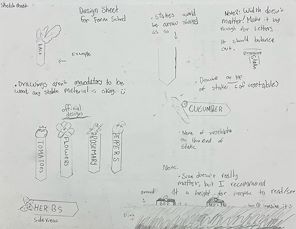 Design Sheet
for Farm School
example
- Drawings aren't mandatory to be
used any stable material is okay
official
designs
TOMATOES
FLOWERS
ROSEMARY
PEPPERS
HERBS
side view
- Stakes would
be arrow shaped
as so
Notes: Width doesn't
matter. Make it big
enough for letters
It should balance
out.
- Drawing on top
of stake (of vegetable)
CUCUMBER
- Name of vegetable
on the end of
stake
Note:
- Size doesn't really
matter, but I recommend
at a height for people to read/see